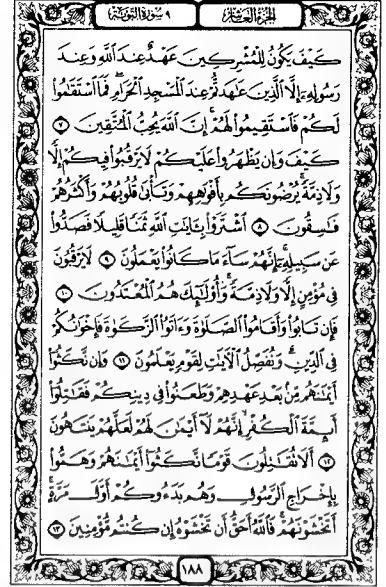 الجزء العاشر
٩ سورة التوبة
كَيْفَ يَكُونُ لِلْمُشْرِكِينَ عَهْدٌ عِندَ اللَّهِ وَعِندَ
رَسُولِهِۦٓ إِلَّا الَّذِينَ عَٰهَدتُّمْ عِندَ الْمَسْجِدِ الْحَرَامِ ۖ فَمَا اسْتَقَٰمُوا۟
لَكُمْ فَاسْتَقِيمُوا۟ لَهُمْ ۚ إِنَّ اللَّهَ يُحِبُّ الْمُتَّقِينَ ٧
كَيْفَ وَإِن يَظْهَرُوا۟ عَلَيْكُمْ لَا يَرْقُبُوا۟ فِيكُمْ إِلًّا
وَلَا ذِمَّةً ۚ يُرْضُونَكُم بِأَفْوَٰهِهِمْ وَتَأْبَىٰ قُلُوبُهُمْ وَأَكْثَرُهُمْ
فَٰسِقُونَ ٨ اشْتَرَوْا۟ بِـَٔايَٰتِ اللَّهِ ثَمَنًا قَلِيلًا فَصَدُّوا۟
عَن سَبِيلِهِۦٓ ۚ إِنَّهُمْ سَآءَ مَا كَانُوا۟ يَعْمَلُونَ ٩ لَا يَرْقُبُونَ
فِى مُؤْمِنٍ إِلًّا وَلَا ذِمَّةً ۚ وَأُو۟لَٰٓئِكَ هُمُ الْمُعْتَدُونَ ١٠
فَإِن تَابُوا۟ وَأَقَامُوا۟ الصَّلَوٰةَ وَءَاتَوُا۟ الزَّكَوٰةَ فَإِخْوَٰنُكُمْ
فِى الدِّينِ ۗ وَنُفَصِّلُ الْءَايَٰتِ لِقَوْمٍ يَعْلَمُونَ ١١ وَإِن نَّكَثُوٓا۟
أَيْمَٰنَهُم مِّنۢ بَعْدِ عَهْدِهِمْ وَطَعَنُوا۟ فِى دِينِكُمْ فَقَٰتِلُوٓا۟
أَئِمَّةَ الْكُفْرِ ۙ إِنَّهُمْ لَآ أَيْمَٰنَ لَهُمْ لَعَلَّهُمْ يَنتَهُونَ
١٢ أَلَا تُقَٰتِلُونَ قَوْمًا نَّكَثُوٓا۟ أَيْمَٰنَهُمْ وَهَمُّوا۟
بِإِخْرَاجِ الرَّسُولِ وَهُم بَدَءُوكُمْ أَوَّلَ مَرَّةٍ ۚ
أَتَخْشَوْنَهُمْ ۚ فَاللَّهُ أَحَقُّ أَن تَخْشَوْهُ إِن كُنتُم مُّؤْمِنِينَ ١٣
١٨٨